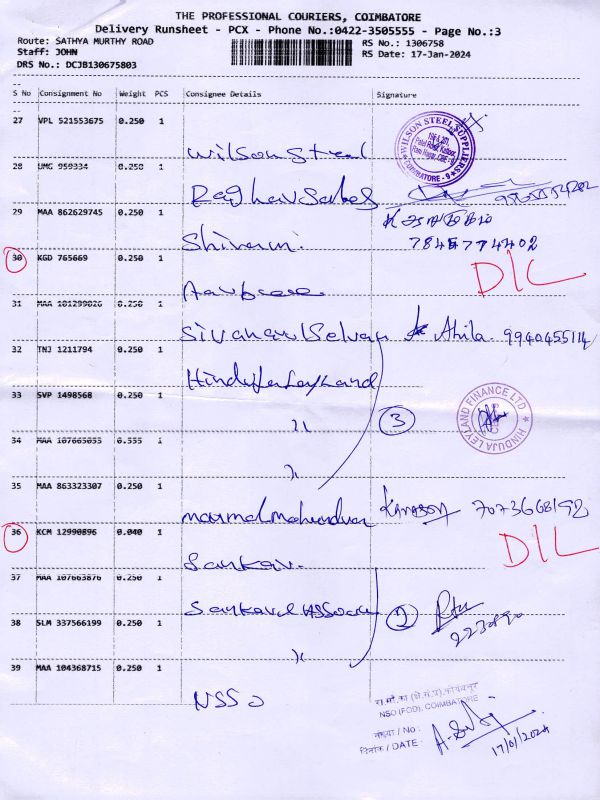 THE PROFESSIONAL COURIERS, COIMBATORE
Delivery Runsheet - PCX - Phone No.:0422-3505555 - Page No.:3
Route: SATHYA MURTHY ROAD
RS No.: 1306758
Staff: JOHN
RS Date: 17-Jan-2024
DRS No.: DCJB130675803
S No Consignment No Weight PCS Consignee Details Signature
27 VPL 521553675 0.250 1
Wilson Steel
WILSON STEEL SUPPLIERS
COIMBATORE - 9
28 UMG 959334 0.250 1
Raghav Sales
29 MAA 862629745 0.250 1
Shivani
30 KGD 765669 0.250 1
D/L
31 MAA 101299026 0.250 1
Sivanarul Selvan Ahila 9940455114
32 TNJ 1211794 0.250 1
Hinduja Leyland
33 SVP 1498568 0.250 1
"
3
HINDUJA LEYLAND FINANCE LTD
34 MAA 107665055 0.555 1
"
35 MAA 863323307 0.250 1
7073668192
36 KCM 12990896 0.040 1
Sankar.
D/L
37 MAA 107663876 0.250 1
2
38 SLM 337566199 0.250 1
"
39 MAA 104368715 0.250 1
NSSO
NSO (FOD), COIMBATORE
संख्या / No :
दिनांक / DATE :
17/01/2024